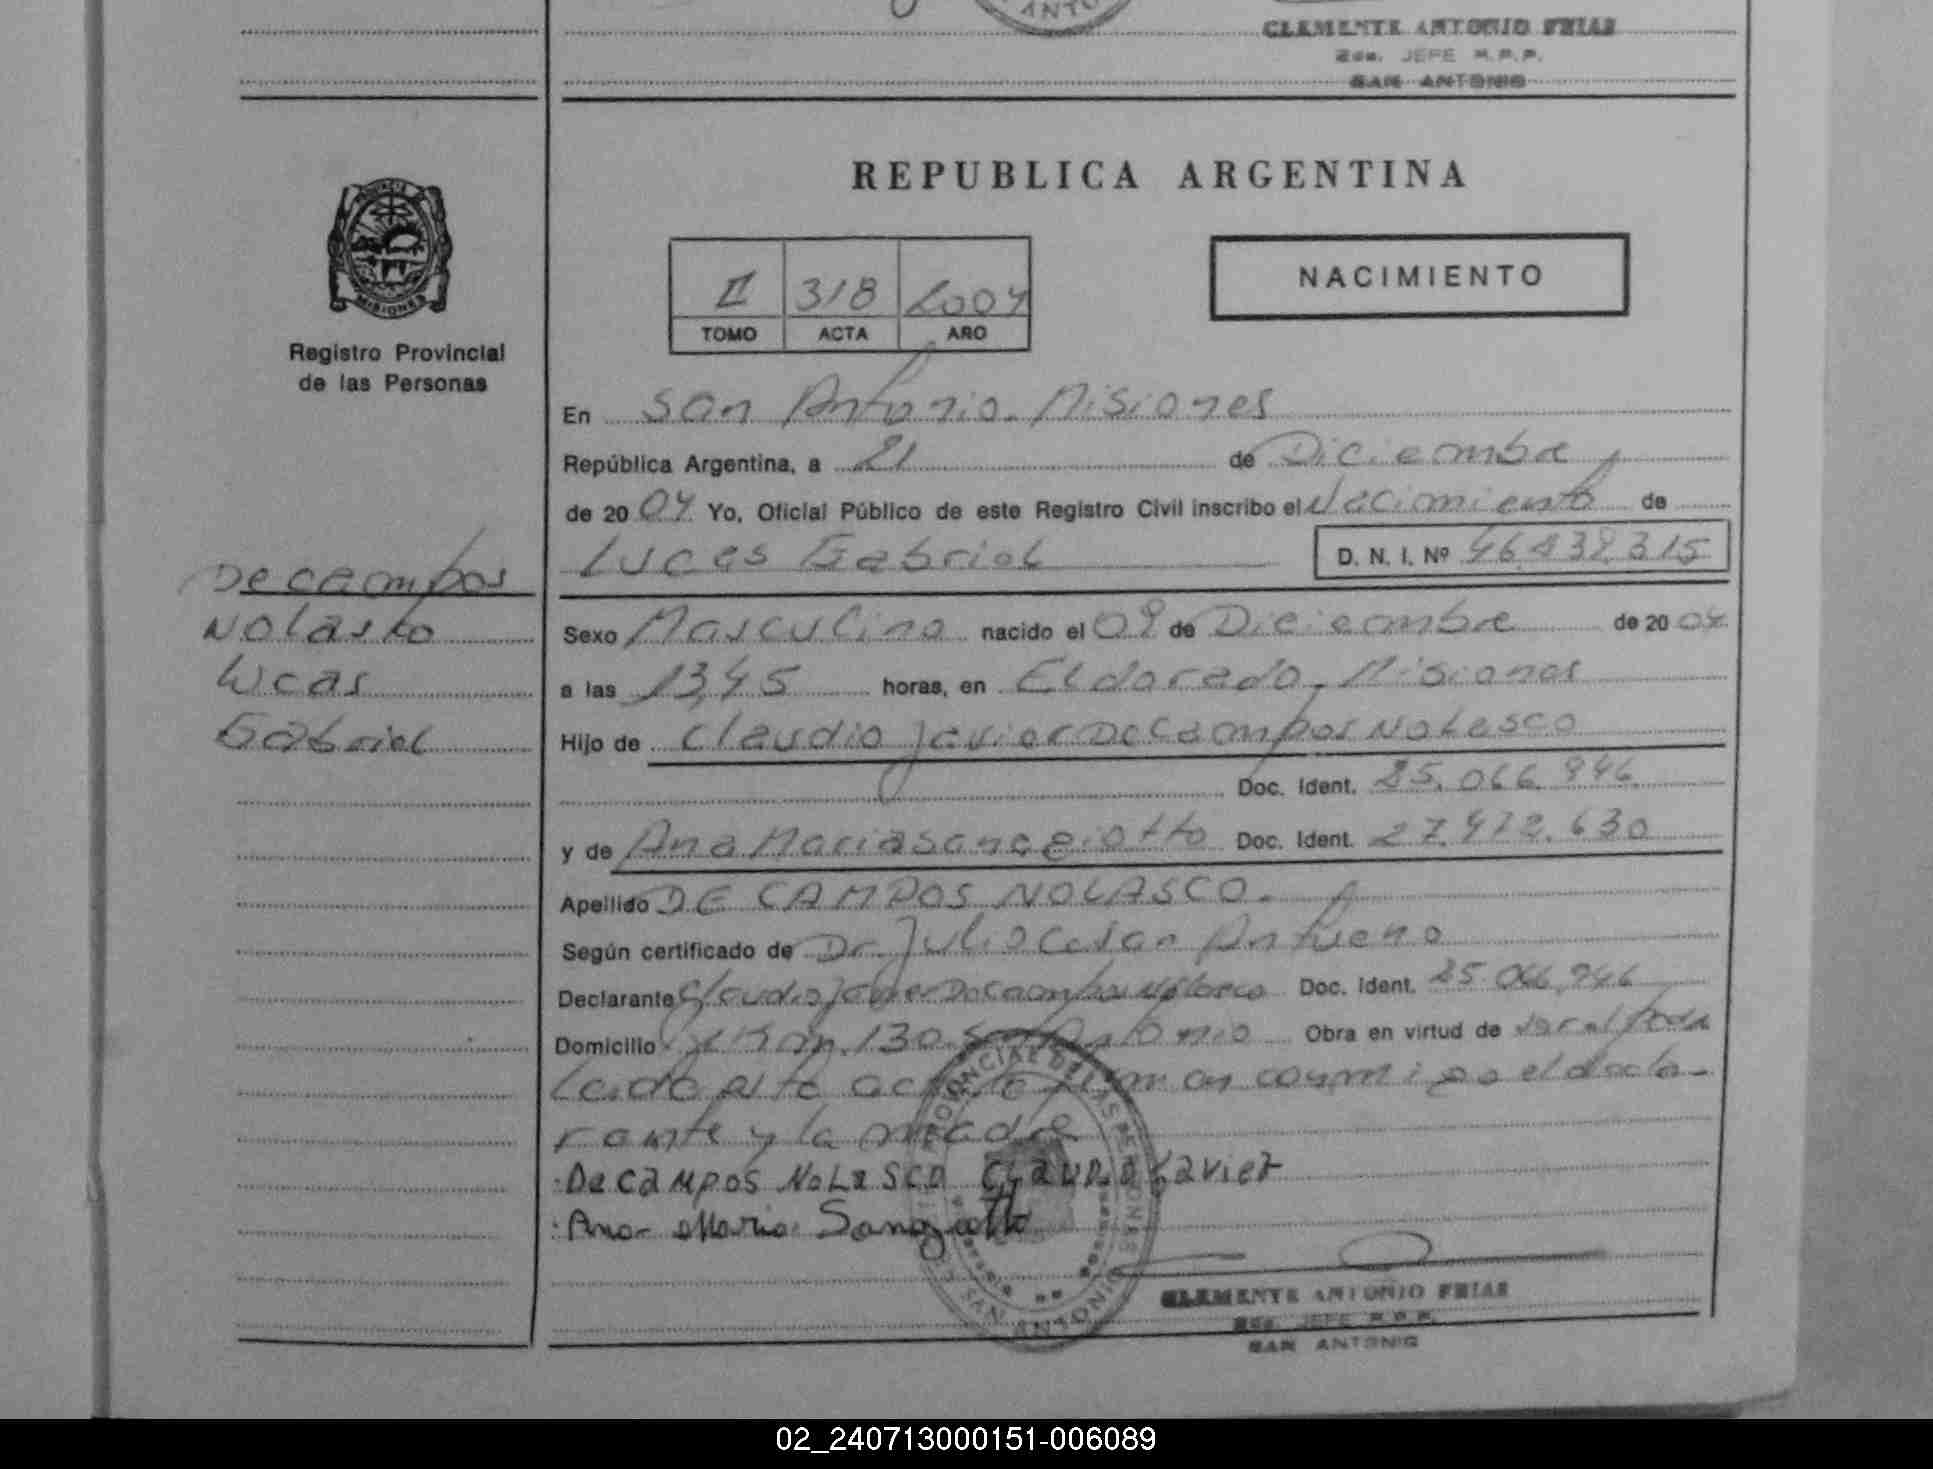 CLEMENTE ANTONIO FRIAS
JEFE R.P.P.
SAN ANTONIO
REPUBLICA ARGENTINA
II 318 2004
TOMO ACTA AÑO
NACIMIENTO
MISIONES
Registro Provincial
de las Personas
En San Antonio. Misiones
República Argentina, a 21 de Diciembre
de 20 04 Yo, Oficial Público de este Registro Civil inscribo el Nacimiento de
Lucas Gabriel D. N. I. Nº 46.438.315
De campos
Nolasko
Lucas
Gabriel
Sexo Masculino nacido el 09 de Diciembre de 20 04
a las 13,45 horas, en Eldorado. Misiones
Hijo de Claudio javier De Campos Nolasco
Doc. Ident. 25.066.946
y de Ana Maria Sanggiotto Doc. Ident. 27.472.630
Apellido DE CAMPOS NOLASCO.
Según certificado de Dr. Julio Cesar
Declarante Claudio Javier De Campos Nolasco Doc. Ident. 25.066.946
Domicilio Km. 130. San Antonio Obra en virtud de
Leida esta acta la firman conmigo el decla-
rante y la madre
De campos NoLaSCO CLauDio Javier
Ana Maria
SAN ANTONIO
CLEMENTE ANTONIO FRIAS
JEFE R.P.P.
SAN ANTONIO
02_240713000151-006089